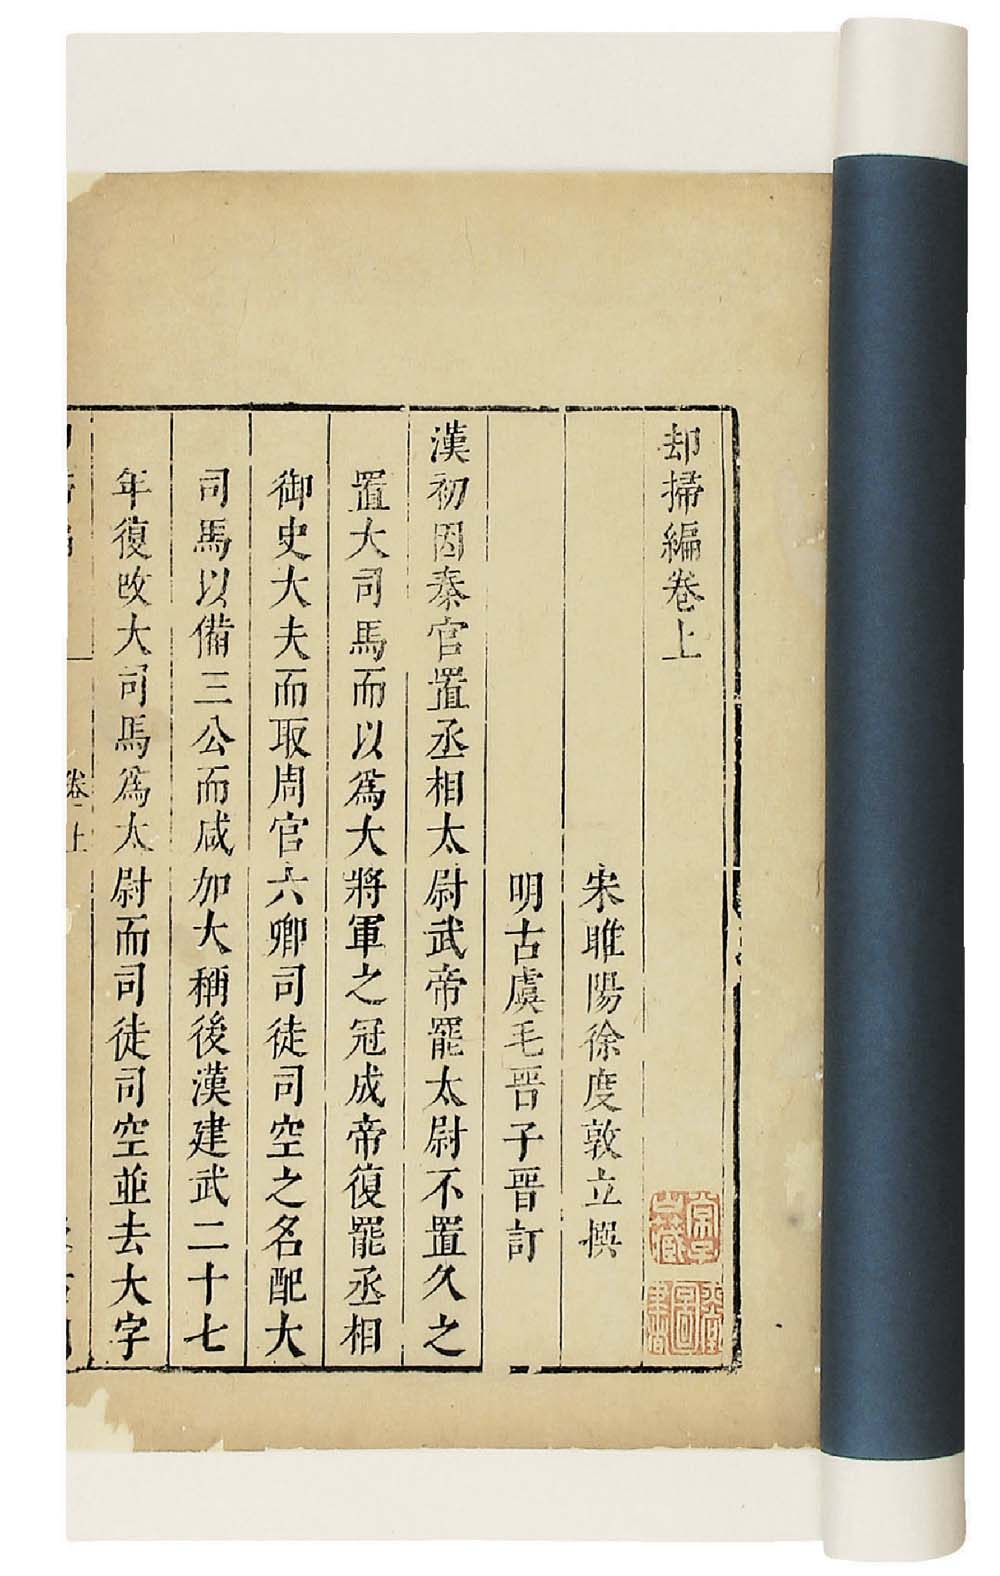 却掃編卷上
宋睢陽徐度敦立撰
明古虞毛晉子晉訂
漢初因秦官置丞相太尉武帝罷太尉不置久之
置大司馬而以爲大將軍之冠成帝復罷丞相
御史大夫而取周官六卿司徒司空之名配大
司馬以備三公而咸加大稱後漢建武二十七
年復改大司馬爲太尉而司徒司空並去大字
卷上